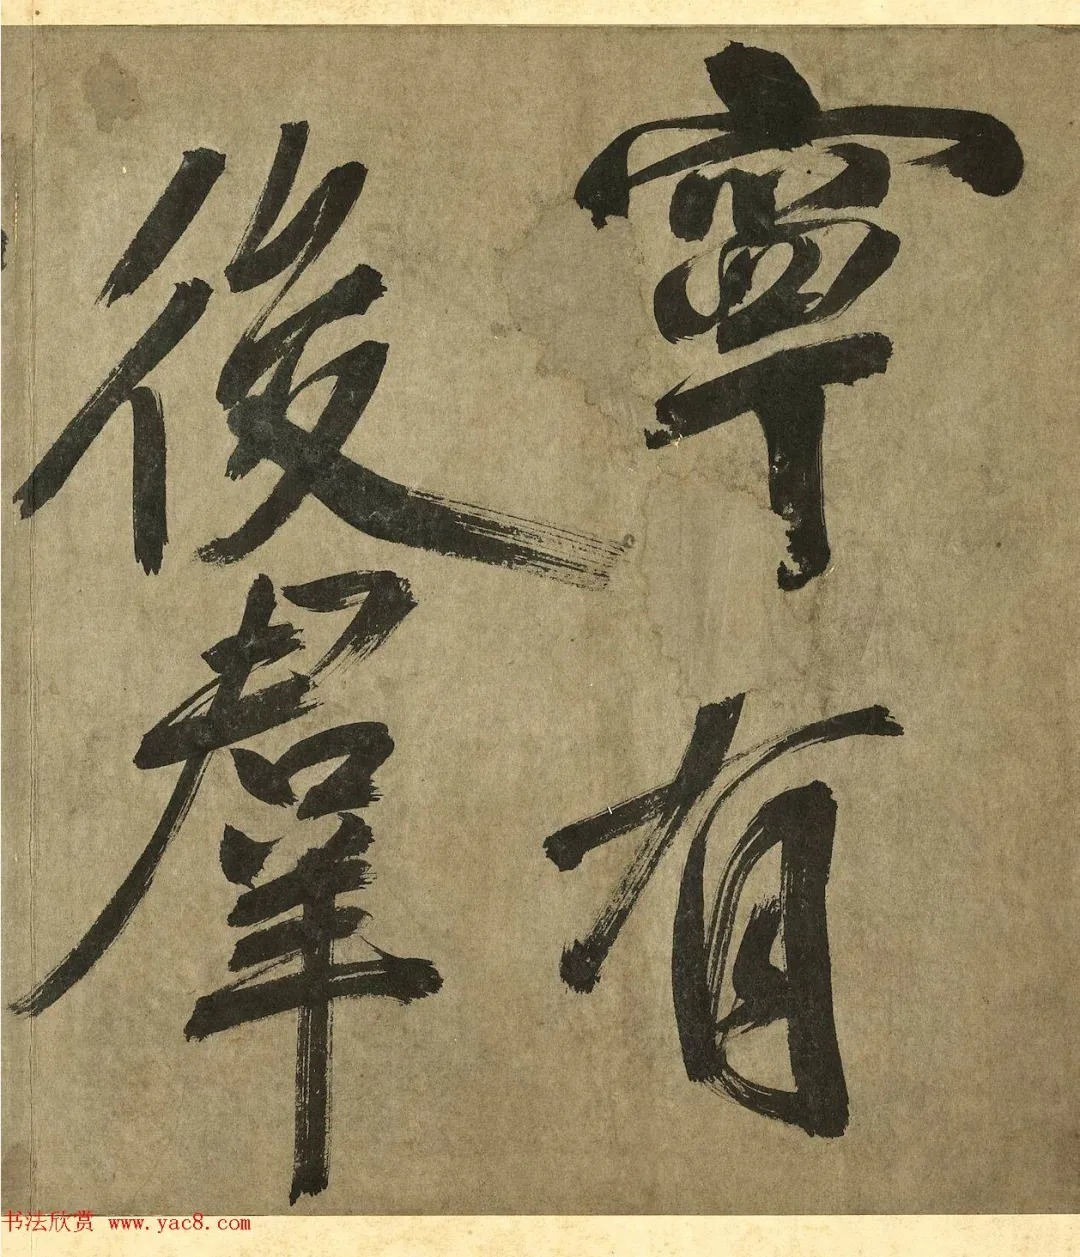 寧有
後羣
书法欣赏 www.yac8.com